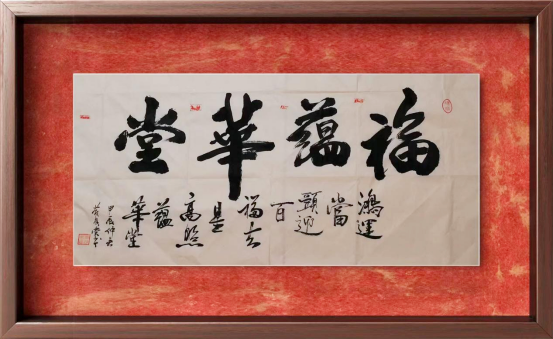 福蘊華堂
鴻運
當
頭迎
百
福吉
星
高照
蘊
華堂
甲辰仲春